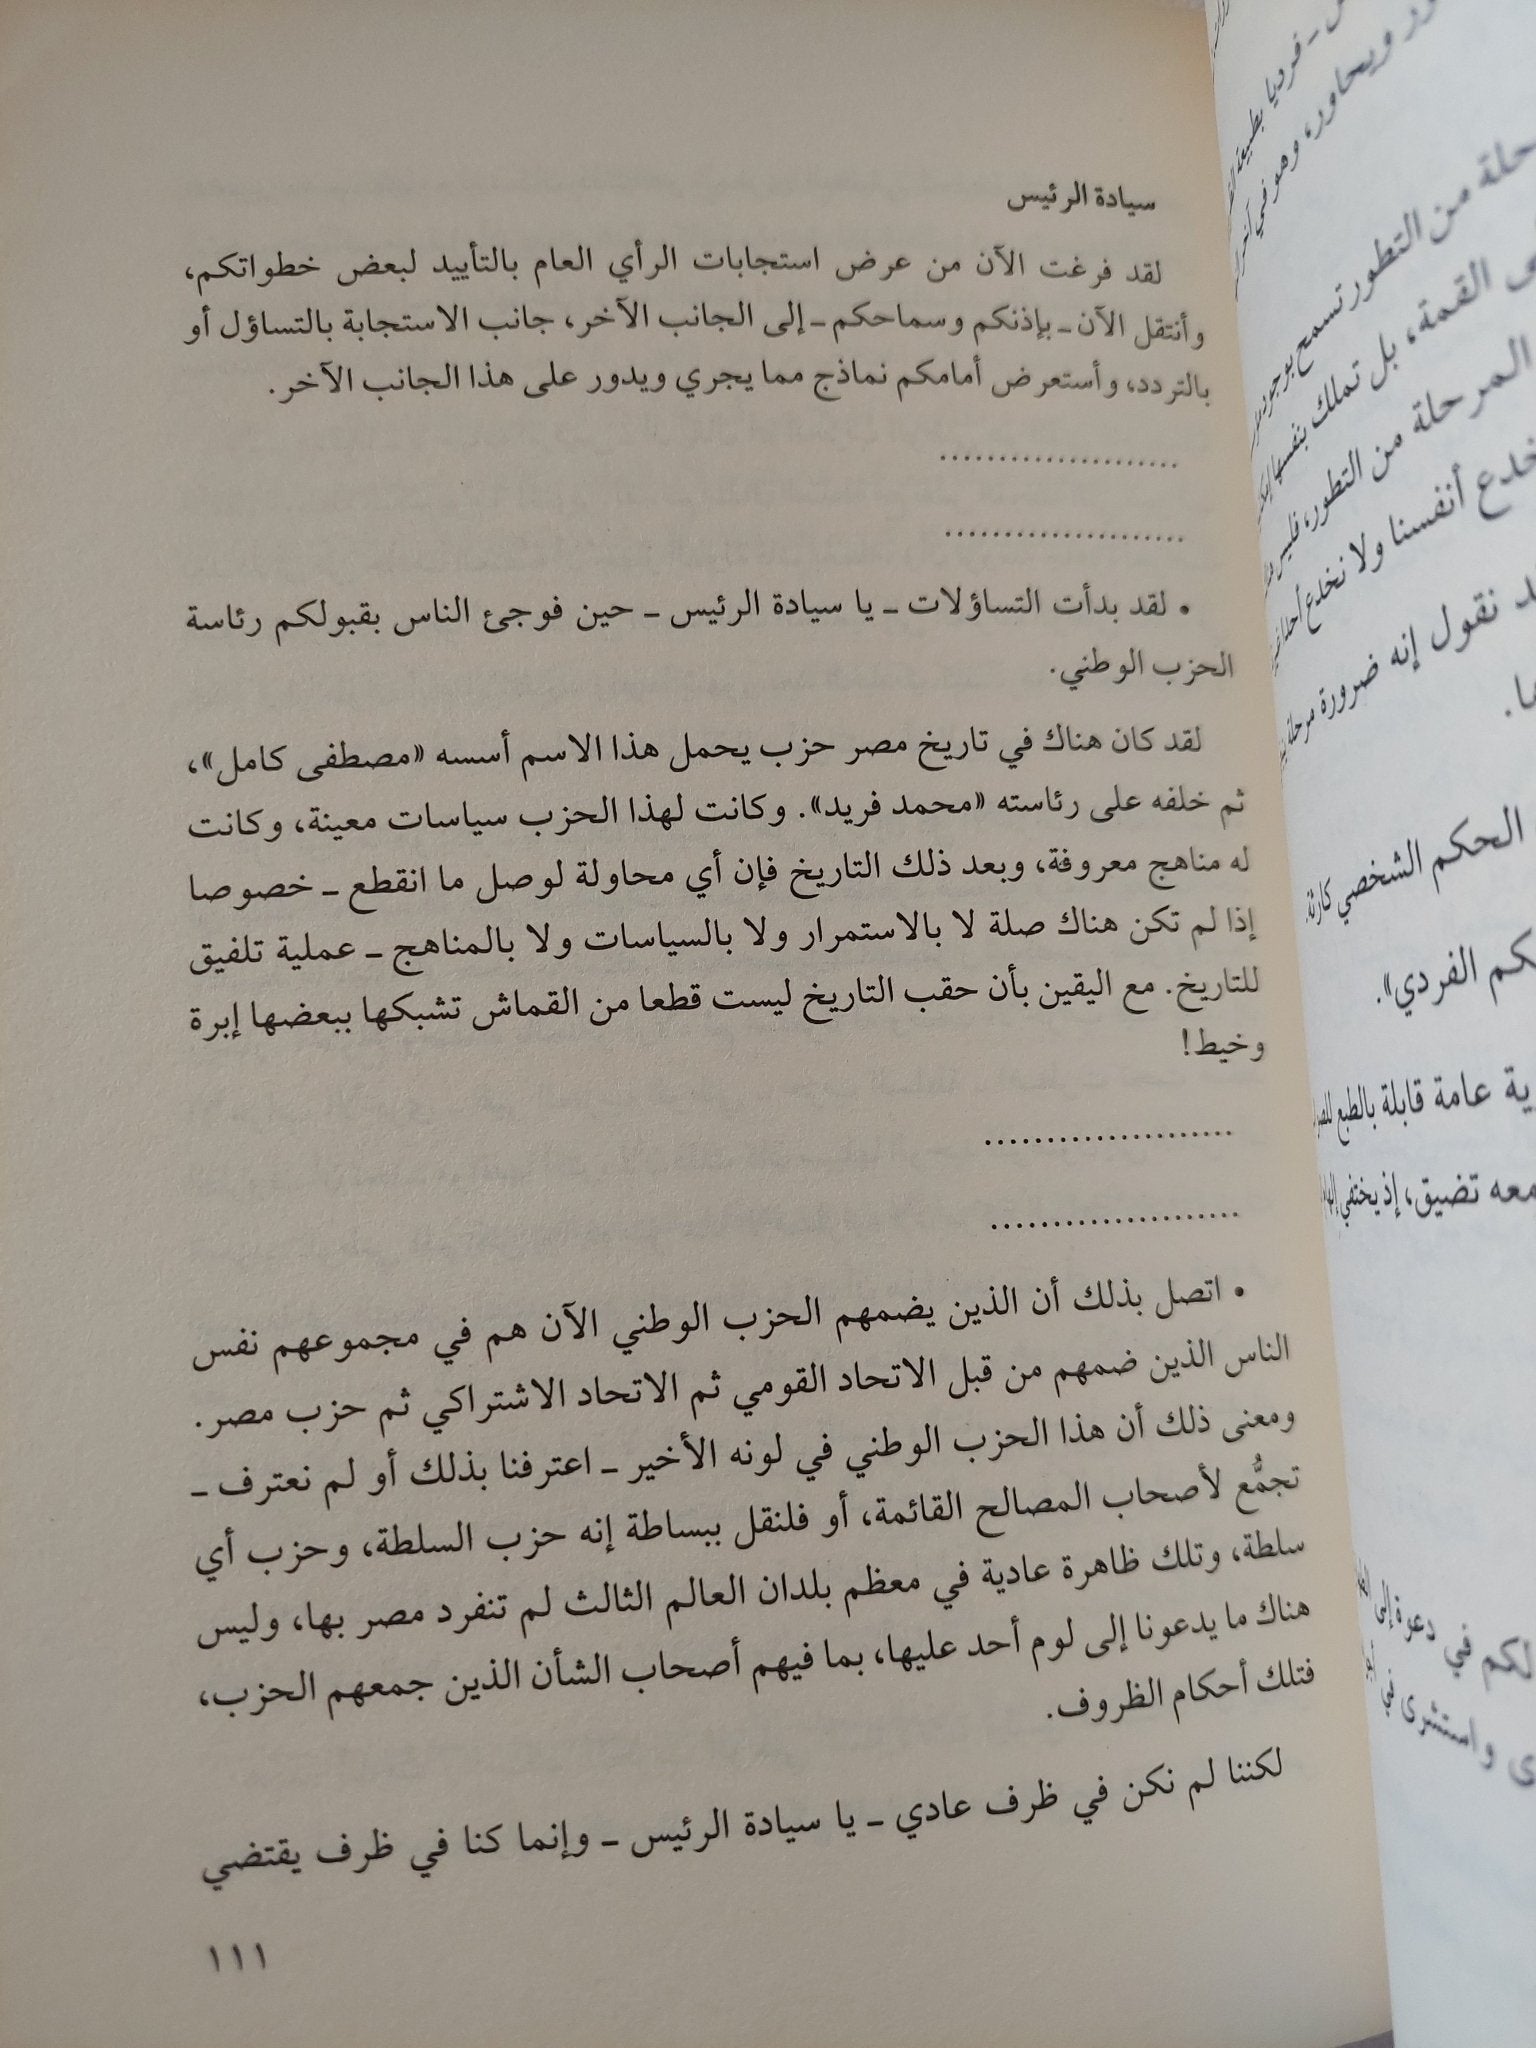 سيادة الرئيس
لقد فرغت الآن من عرض استجابات الرأي العام بالتأييد لبعض خطواتكم،
وأنتقل الآن ـ بإذنكم وسماحكم ـ إلى الجانب الآخر، جانب الاستجابة بالتساؤل أو
بالتردد، وأستعرض أمامكم نماذج مما يجري ويدور على هذا الجانب الآخر.
.....................
.....................
• لقد بدأت التساؤلات ـ يا سيادة الرئيس ـ حين فوجئ الناس بقبولكم رئاسة
الحزب الوطني.
لقد كان هناك في تاريخ مصر حزب يحمل هذا الاسم أسسه «مصطفى كامل»،
ثم خلفه على رئاسته «محمد فريد». وكانت لهذا الحزب سياسات معينة، وكانت
له مناهج معروفة، وبعد ذلك التاريخ فإن أي محاولة لوصل ما انقطع ـ خصوصا
إذا لم تكن هناك صلة لا بالاستمرار ولا بالسياسات ولا بالمناهج ـ عملية تلفيق
للتاريخ. مع اليقين بأن حقب التاريخ ليست قطعا من القماش تشبكها ببعضها إبرة
وخيط!
.....................
.....................
• اتصل بذلك أن الذين يضمهم الحزب الوطني الآن هم في مجموعهم نفس
الناس الذين ضمهم من قبل الاتحاد القومي ثم الاتحاد الاشتراكي ثم حزب مصر.
ومعنى ذلك أن هذا الحزب الوطني في لونه الأخير ـ اعترفنا بذلك أو لم نعترف ـ
تجمُّع لأصحاب المصالح القائمة، أو فلنقل ببساطة إنه حزب السلطة، وحزب أي
سلطة، وتلك ظاهرة عادية في معظم بلدان العالم الثالث لم تنفرد مصر بها، وليس
هناك ما يدعونا إلى لوم أحد عليها، بما فيهم أصحاب الشأن الذين جمعهم الحزب،
فتلك أحكام الظروف.
لكننا لم نكن في ظرف عادي ـ يا سيادة الرئيس ـ وإنما كنا في ظرف يقتضي
١١١
ـ فرديا بطبيعة
ويحاور، وهو في آخر
من التطور تسمح بوجود
القمة، بل تملك بنفسها
المرحلة من التطور، فليس
أنفسنا ولا نخدع أحدا
نقول إنه ضرورة مرحلة
الحكم الشخصي كارثة
الفردي».
عامة قابلة بالطبع
معه تضيق، إذ يختفي
في دعوة إلى
واستشرى في